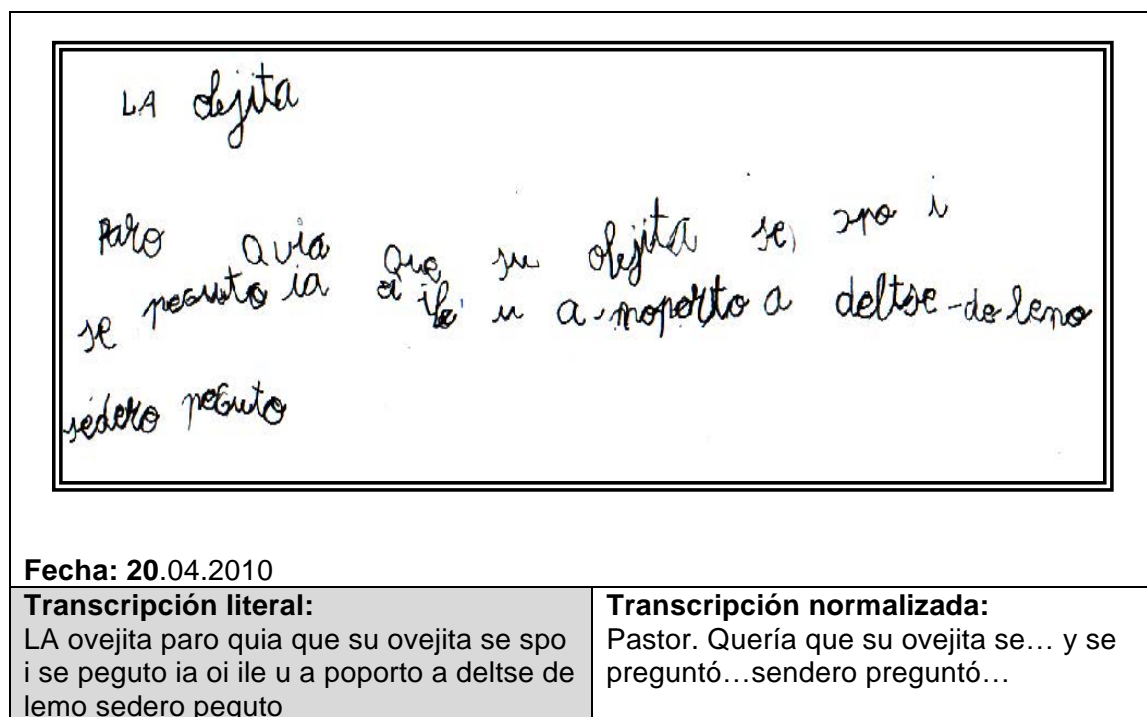 LA olejita
Paro Quia Que su olejita se, spo i
se peguto ia oi ile u a moporto a deltse-de lemo
sedero peguto
Fecha: 20.04.2010
Transcripción literal:
LA ovejita paro quia que su ovejita se spo
i se peguto ia oi ile u a poporto a deltse de
lemo sedero peguto
Transcripción normalizada:
Pastor. Quería que su ovejita se… y se
preguntó…sendero preguntó…